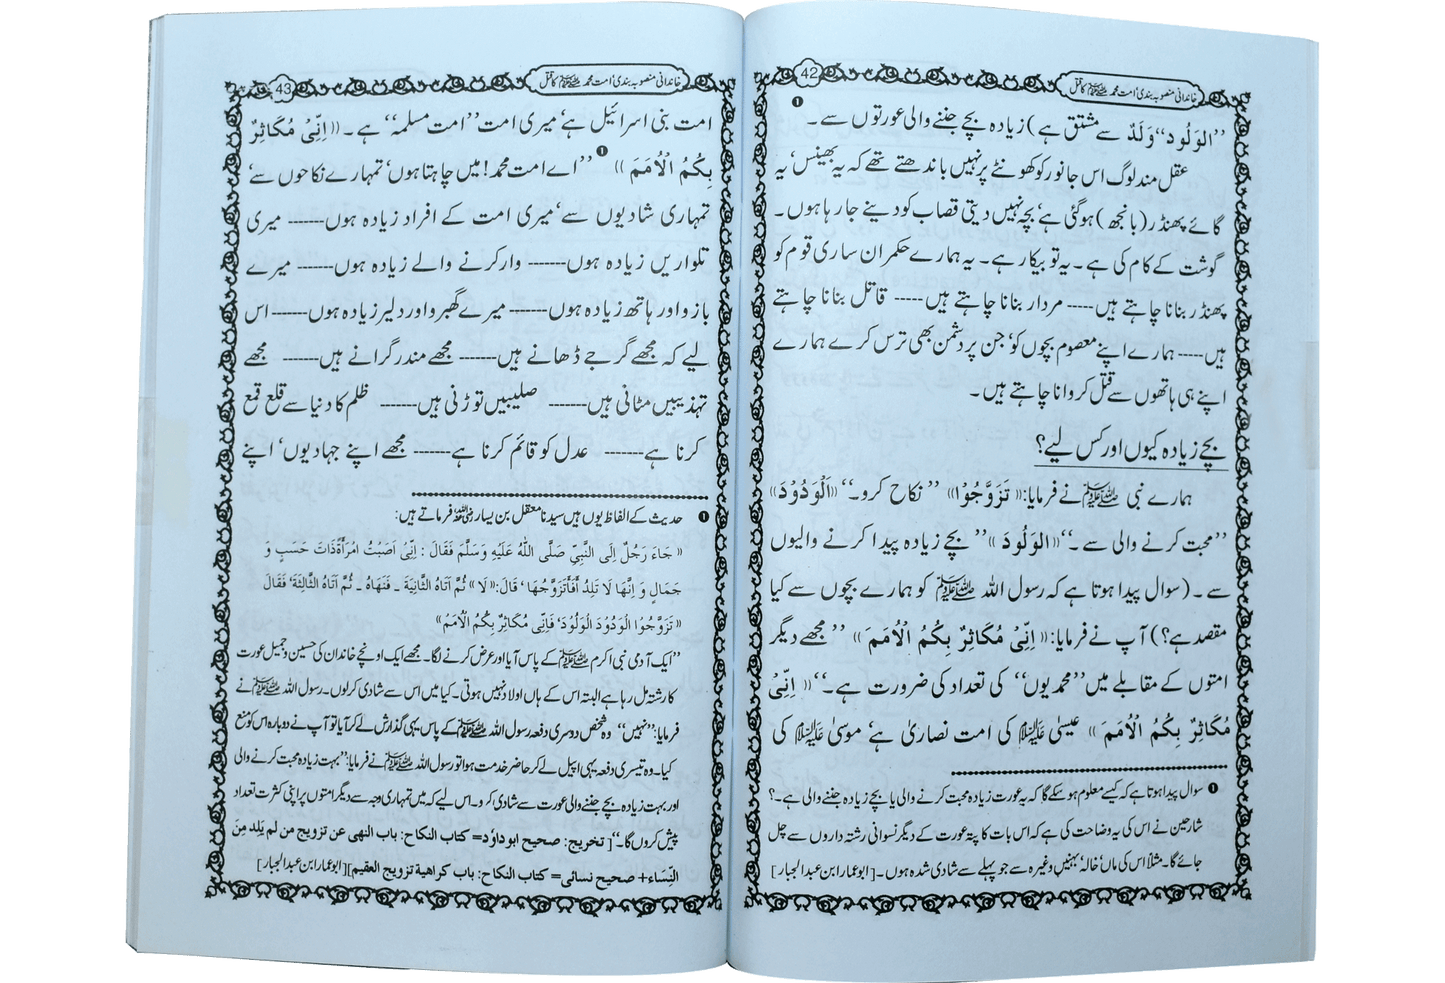 42
خاندانی منصوبہ بندی‘ امت محمد ﷺ کا قتل
’’الوَلُود‘‘ وَلَدٌ سے مشتق ہے) زیادہ بچے جننے والی عورتوں سے۔ ❶
عقل مند لوگ اس جانور کو کھونٹے پر نہیں باندھتے تھے کہ یہ بھینس‘ یہ
گائے پھنڈر (بانجھ) ہوگئی ہے‘ بچہ نہیں دیتی قصاب کو دینے جا رہا ہوں۔
گوشت کے کام کی ہے۔ یہ تو بیکار ہے۔ یہ ہمارے حکمران ساری قوم کو
پھنڈر بنانا چاہتے ہیں---- مردار بنانا چاہتے ہیں---- قاتل بنانا چاہتے
ہیں---- ہمارے اپنے معصوم بچوں کو‘ جن پر دشمن بھی ترس کرے ہمارے
اپنے ہی ہاتھوں سے قتل کروانا چاہتے ہیں۔
بچے زیادہ کیوں اور کس لیے؟
ہمارے نبی ﷺ نے فرمایا: «تَزَوَّجُوْا» ’’نکاح کرو۔‘‘ «اَلْوَدُوْدَ»
’’محبت کرنے والی سے۔‘‘ «الوَلُودَ» ’’بچے زیادہ پیدا کرنے والیوں
سے۔ (سوال پیدا ہوتا ہے کہ رسول اللہ ﷺ کو ہمارے بچوں سے کیا
مقصد ہے؟) آپ نے فرمایا: «اِنِّیْ مُکَاثِرٌ بِکُمُ الْاُمَمَ» ’’مجھے دیگر
امتوں کے مقابلے میں ’’محمدیوں‘‘ کی تعداد کی ضرورت ہے۔‘‘ «اِنِّیْ
مُکَاثِرٌ بِکُمُ الْاُمَمَ» عیسیٰ علیہ السلام کی امت نصاریٰ ہے‘ موسیٰ علیہ السلام کی
❶ سوال پیدا ہوتا ہے کہ کیسے معلوم ہو سکے گا کہ یہ عورت زیادہ محبت کرنے والی یا بچے زیادہ جننے والی ہے۔؟
شارحین نے اس کی یہ وضاحت کی ہے کہ اس بات کا پتہ عورت کے دیگر نسوانی رشتہ داروں سے چل
جائے گا۔ مثلاً اس کی ماں‘ خالہ‘ بہنیں وغیرہ سے جو پہلے سے شادی شدہ ہوں۔ [ابوعمار ابن عبدالجبار]
43
خاندانی منصوبہ بندی‘ امت محمد ﷺ کا قتل
امت بنی اسرائیل ہے‘ میری امت ’’امت مسلمہ‘‘ ہے۔ «اِنِّیْ مُکَاثِرٌ
بِکُمُ الْاُمَمَ» ❶ ’’اے امت محمد! میں چاہتا ہوں‘ تمہارے نکاحوں سے‘
تمہاری شادیوں سے‘ میری امت کے افراد زیادہ ہوں------ میری
تلواریں زیادہ ہوں------ وار کرنے والے زیادہ ہوں------ میرے
بازو اور ہاتھ زیادہ ہوں------ میرے گھبرو اور دلیر زیادہ ہوں------ اس
لیے کہ مجھے گرجے ڈھانے ہیں------ مجھے مندر گرانے ہیں------ مجھے
تہذیبیں مٹانی ہیں------ صلیبیں توڑنی ہیں------ ظلم کا دنیا سے قلع قمع
کرنا ہے------ عدل کو قائم کرنا ہے------ مجھے اپنے جہادیوں‘ اپنے
❶ حدیث کے الفاظ یوں ہیں سیدنا معقل بن یسار رضی اللہ عنہ فرماتے ہیں:
«جَاءَ رَجُلٌ اِلَی النَّبِیِّ صَلَّی اللّٰہُ عَلَیْہِ وَسَلَّمَ فَقَالَ : اِنِّیْ اَصَبْتُ امْرَأَۃً ذَاتَ حَسَبٍ وَ
جَمَالٍ وَ اِنَّھَا لَا تَلِدُ اَفَأَتَزَوَّجُھَا‘ قَالَ: «لَا» ثُمَّ اَتَاہُ الثَّانِیَۃَ ۔ فَنَھَاہُ ۔ ثُمَّ اَتَاہُ الثَّالِثَۃَ‘ فَقَالَ
«تَزَوَّجُوا الْوَدُوْدَ الْوَلُوْدَ‘ فَاِنِّی مُکَاثِرٌ بِکُمُ الْاُمَمَ»
’’ایک آدمی نبی اکرم ﷺ کے پاس آیا اور عرض کرنے لگا۔ مجھے ایک اونچے خاندان کی حسین و جمیل عورت
کا رشتہ مل رہا ہے البتہ اس کے ہاں اولاد نہیں ہوتی۔ کیا میں اس سے شادی کرلوں۔ رسول اللہ ﷺ نے
فرمایا: ’’نہیں‘‘ وہ شخص دوسری دفعہ رسول اللہ ﷺ کے پاس یہی گذارش لے کر آیا تو آپ نے دوبارہ اس کو منع
کیا۔ وہ تیسری دفعہ یہی اپیل لے کر حاضر خدمت ہوا تو رسول اللہ ﷺ نے فرمایا: ’’بہت زیادہ محبت کرنے والی
اور بہت زیادہ بچے جننے والی عورت سے شادی کرو۔ اس لیے کہ میں تمہاری وجہ سے دیگر امتوں پر اپنی کثرت تعداد
پیش کروں گا۔‘‘ [تخریج: صحیح ابوداؤد= کتاب النکاح: باب النھی عن تزویج من لم یَلِد مِنَ
النِّسَاء+ صحیح نسائی= کتاب النکاح: باب کراھیۃ تزویج العقیم] [ابوعمار ابن عبدالجبار]